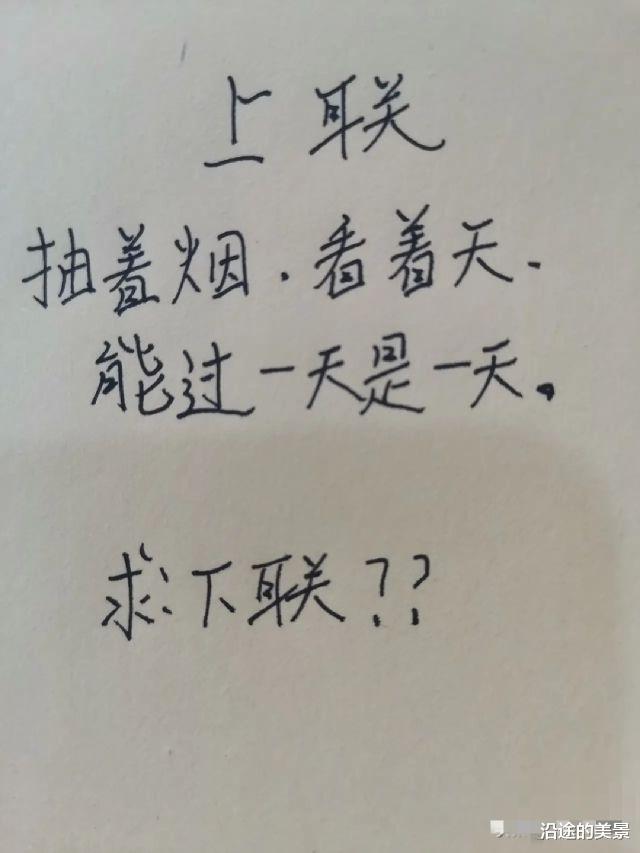 上联
抽着烟.看着天.
能过一天是一天。
求下联??
沿途的美景